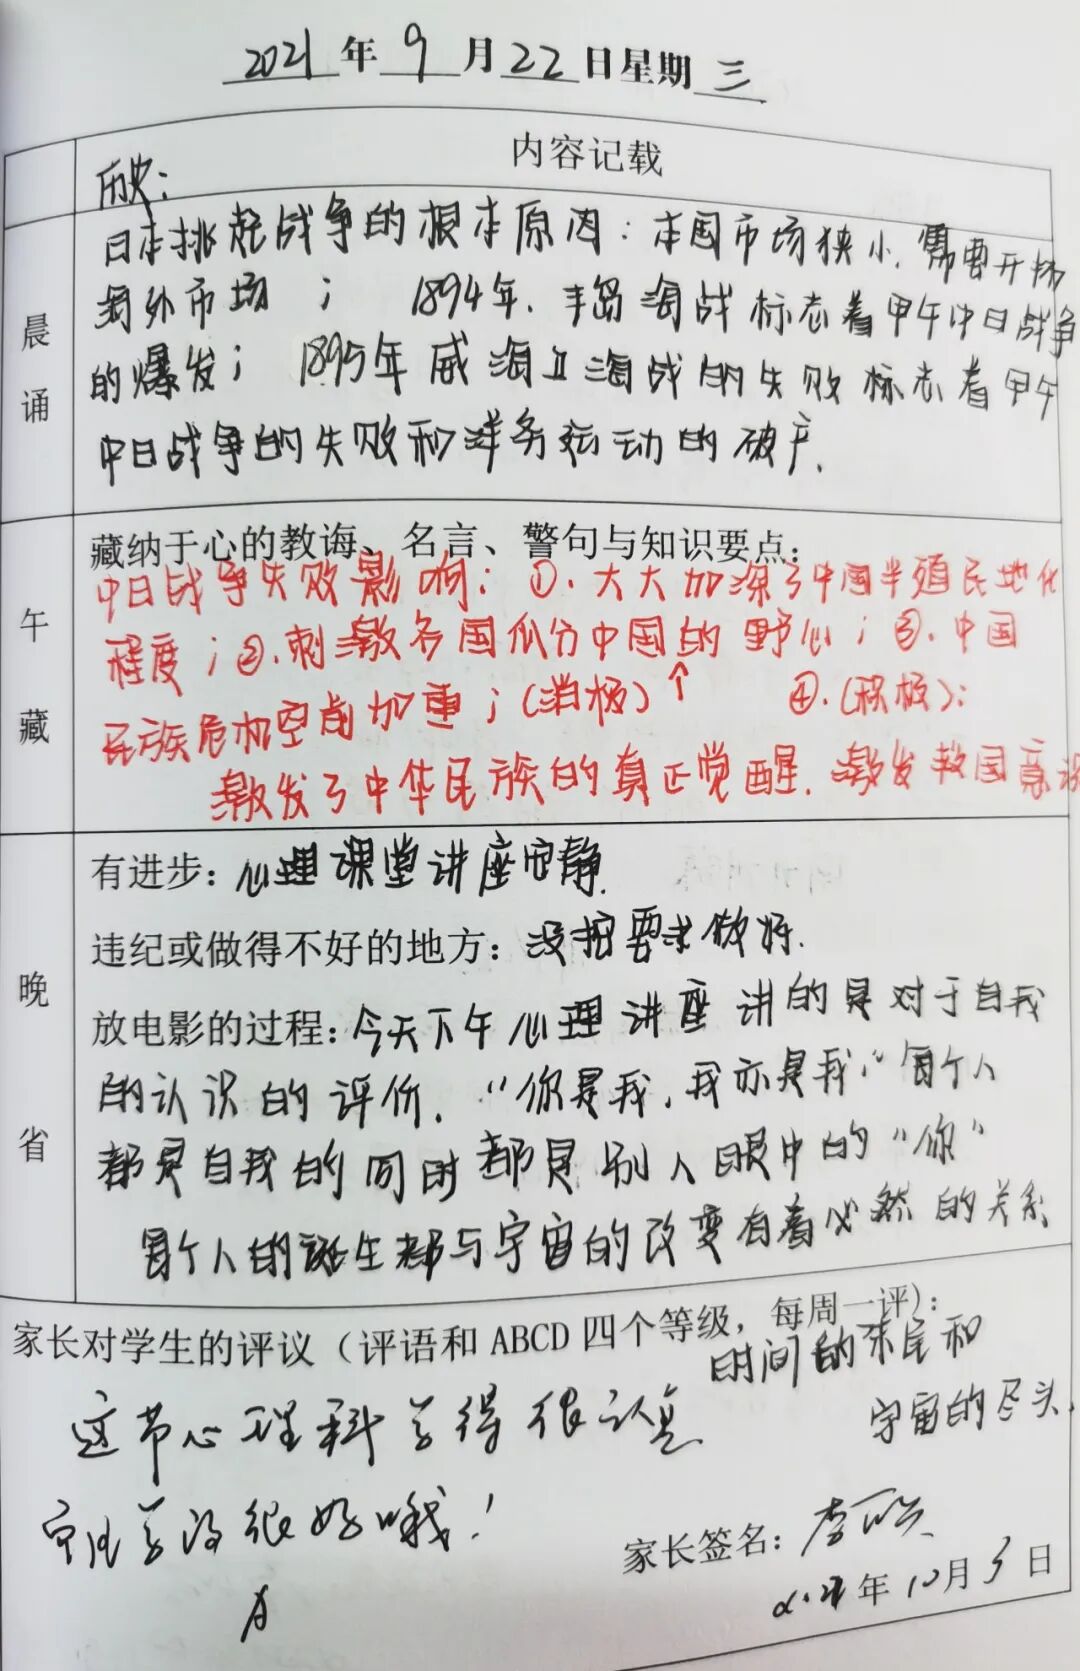 2021年9月22日星期三
内容记载
历史:
晨诵
日本挑起战争的根本原因:本国市场狭小,需要开拓
海外市场; 1894年,丰岛海战标志着甲午中日战争
的爆发; 1895年威海卫海战的失败标志着甲午
中日战争的失败和洋务运动的破产.
午藏
藏纳于心的教诲、名言、警句与知识要点:
中日战争失败影响:①.大大加深了中国半殖民地化
程度;②.刺激各国瓜分中国的野心;③.中国
民族危机空前加重;(消极)↑ ④.(积极):
激发了中华民族的真正觉醒.激发救国意识
晚省
有进步:心理课堂讲座安静.
违纪或做得不好的地方:没按要求做好.
放电影的过程:今天下午心理讲座讲的是对于自我
的认识的评价."你是我,我亦是我,"每个人
都是自我的同时都是别人眼中的"你"
每个人的诞生都与宇宙的改变有着必然的关系
家长对学生的评议(评语和ABCD四个等级,每周一评):
时间的末尾和
宇宙的尽头.
这节心理科学得很认真
很好哦!
A
家长签名:李
2021年10月3日